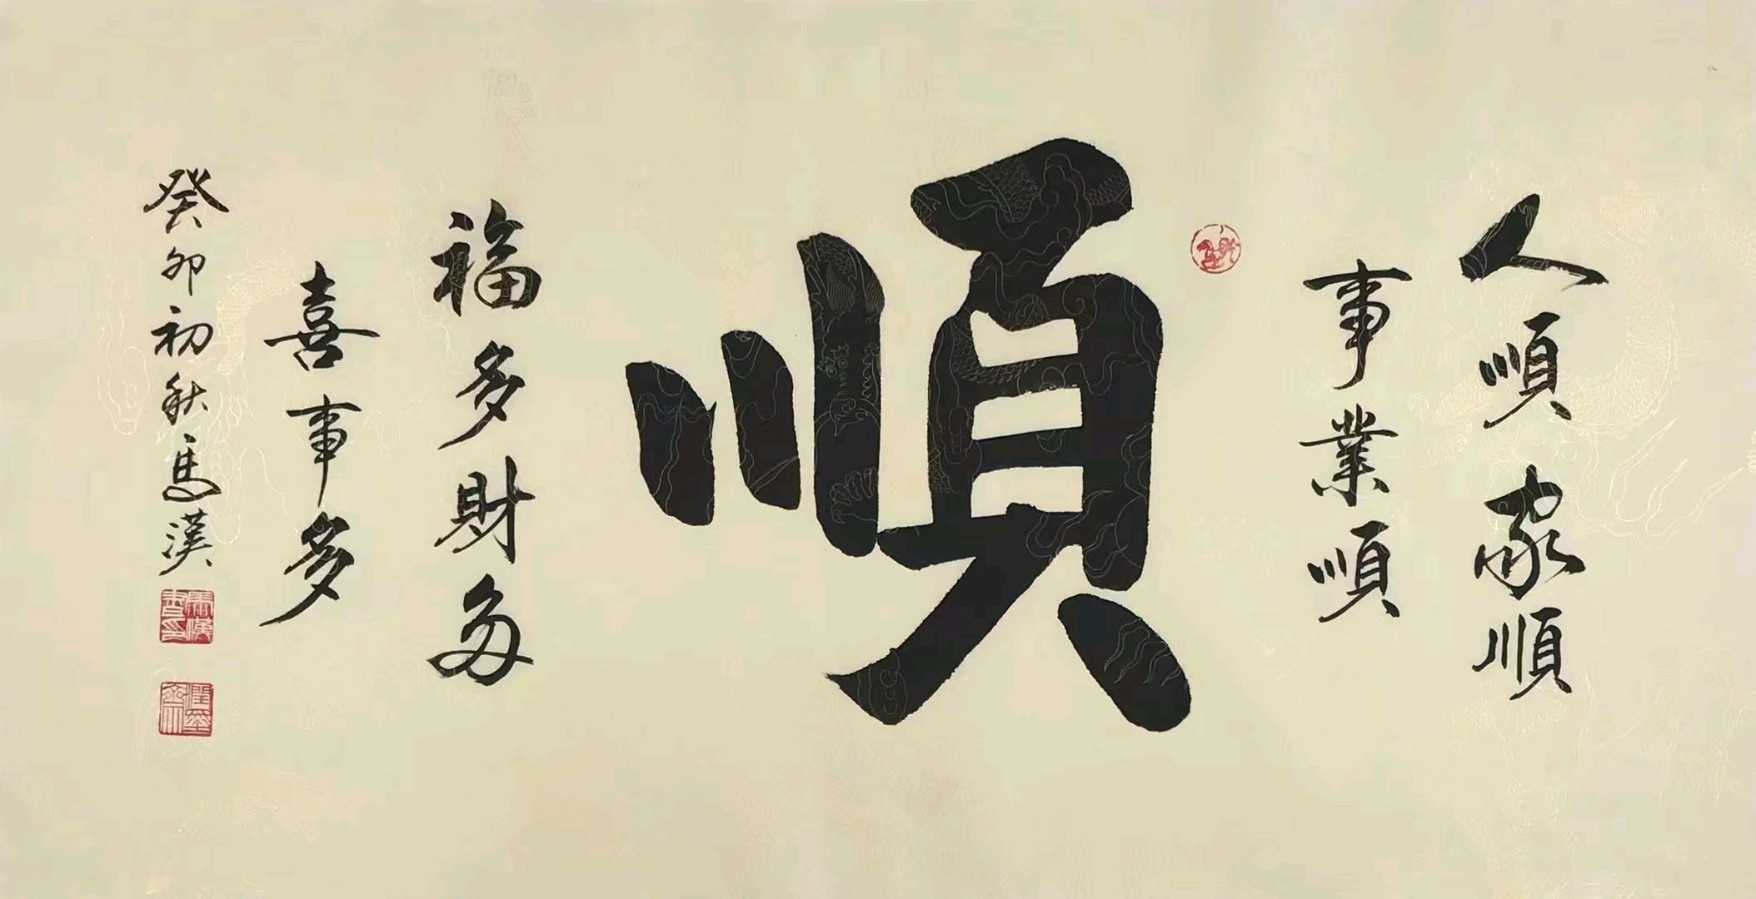 人順家順
事業順
順
福多財多
喜事多
癸卯初秋馬漢